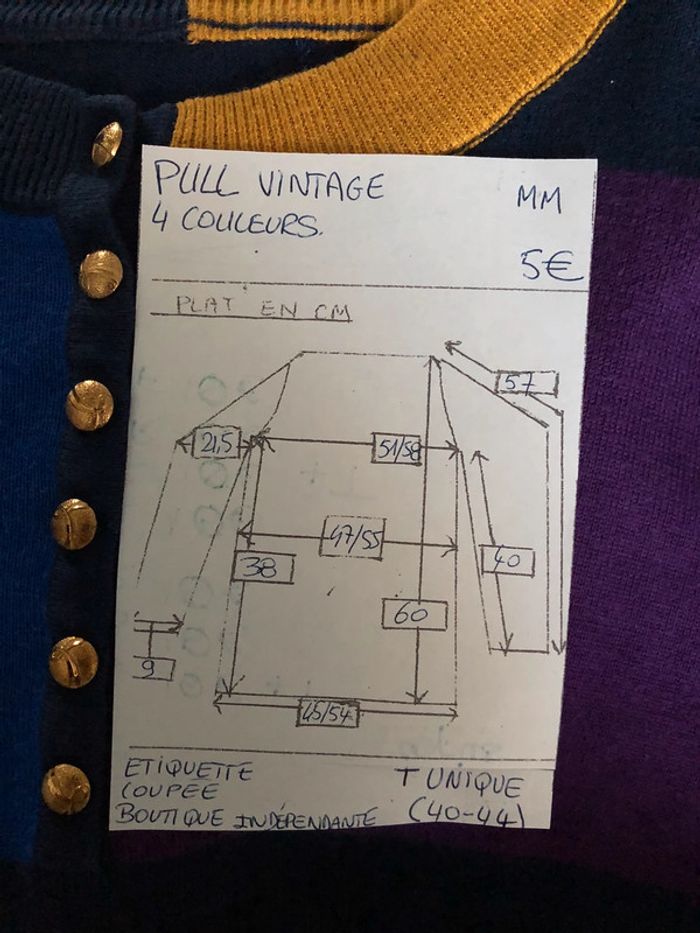 PULL VINTAGE MM
4 COULEURS.
5€
PLAT EN CM
57
21,5 51/58
47/55
38 40
60
9
45/54
ETIQUETTE T UNIQUE
COUPÉE
BOUTIQUE INDÉPENDANTE (40-44)